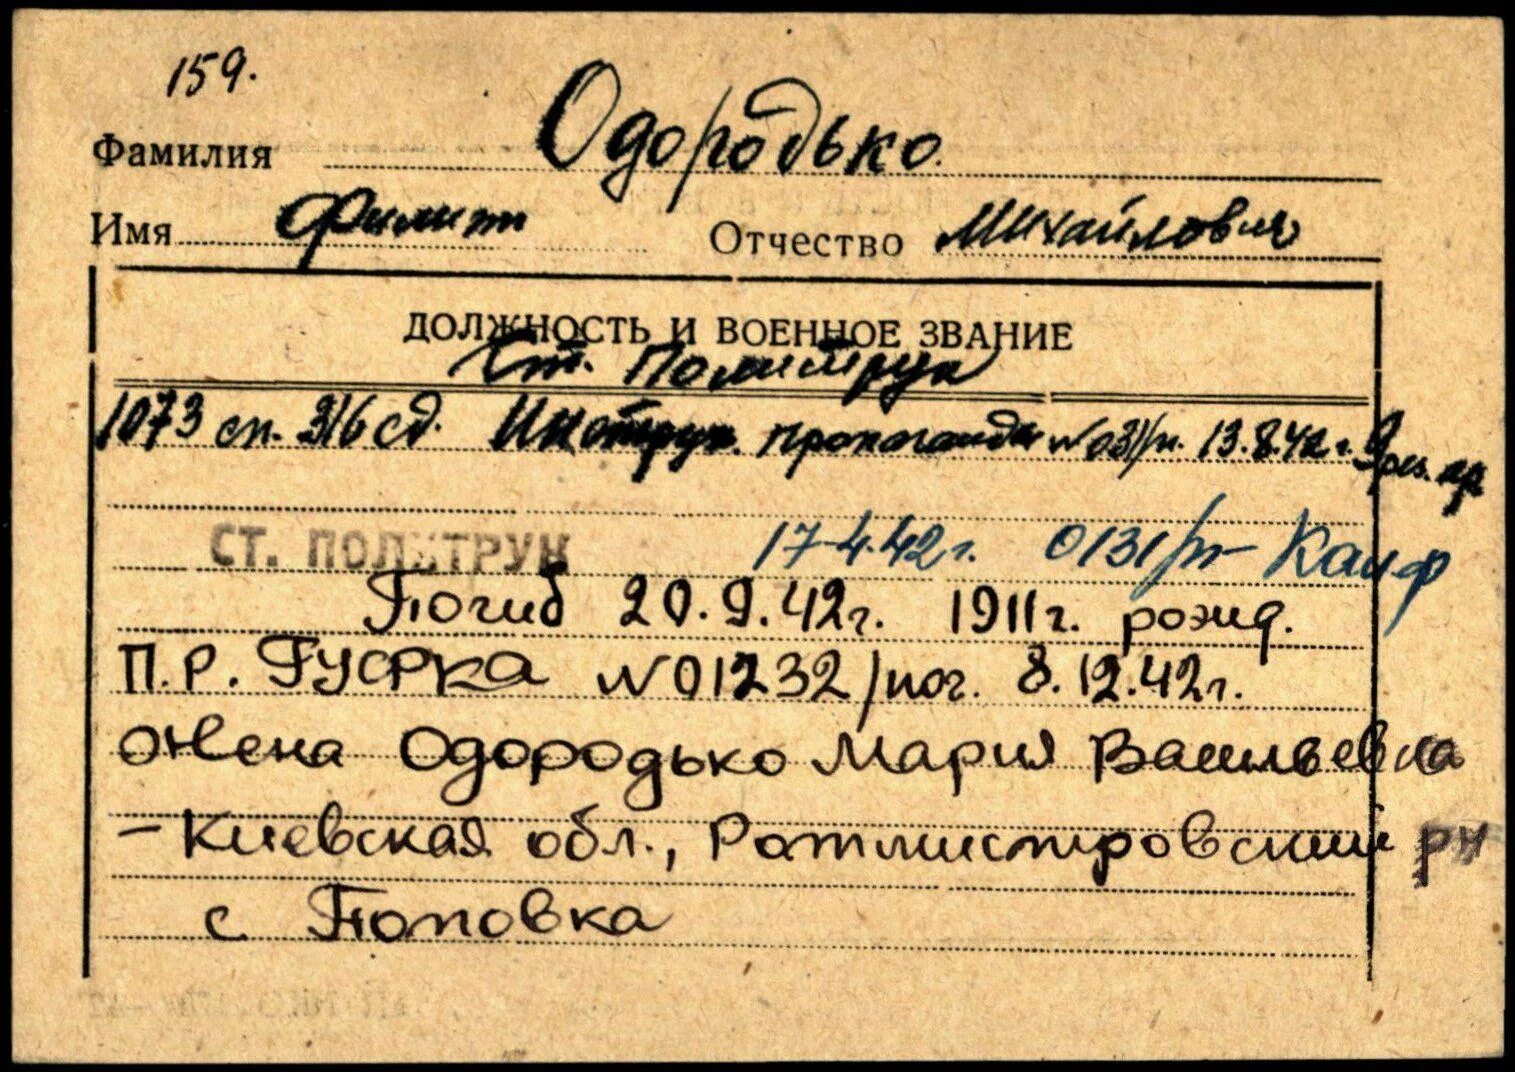 159.
Фамилия Одородько
Имя Филипп Отчество Михайлович
ДОЛЖНОСТЬ И ВОЕННОЕ ЗВАНИЕ
Ст. Политрук
1073 сп. 316 сд. Инструк. пропаганды 13.8.42 г.
СТ. ПОЛИТРУК 17-4.42 г. 0131/п-
Погиб 20.9.42г. 1911г. рожд.
П.Р. ГУФРКА №01232/пог. 8.12.42г.
жена Одородько Мария Васильевна
- Киевская обл., Ротмистровский рн
с. Поповка